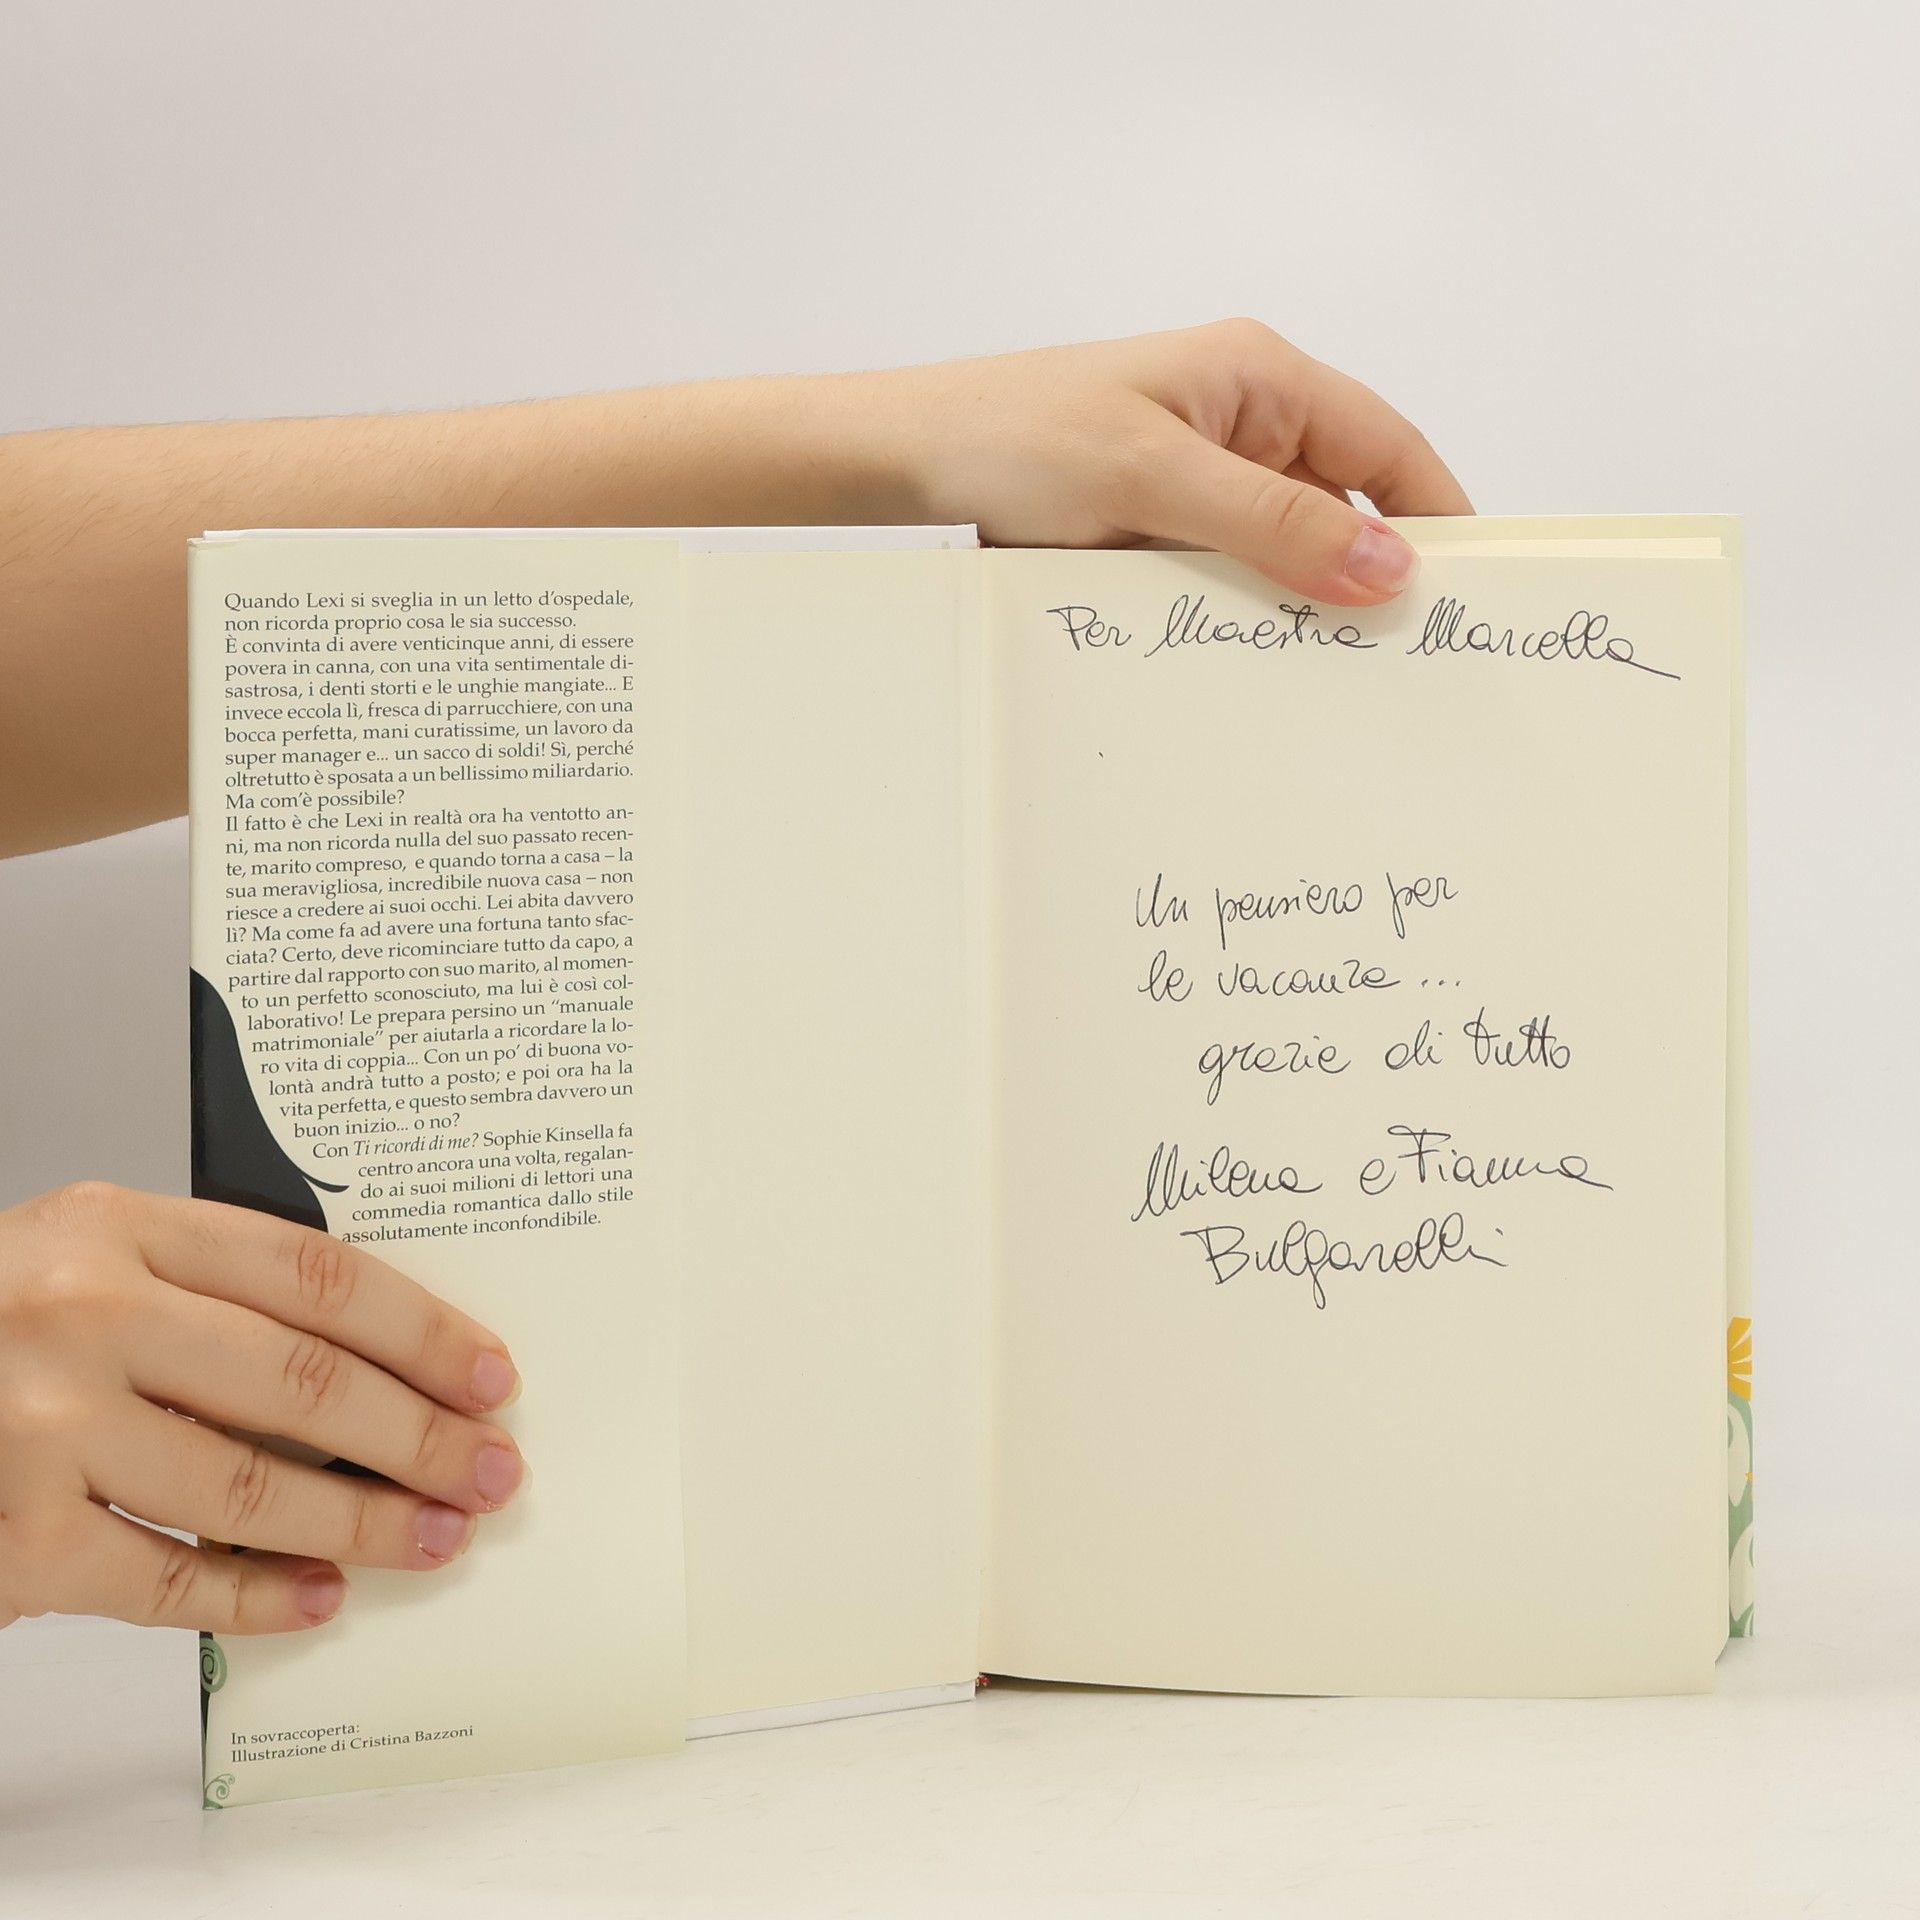 Quando Lexi si sveglia in un letto d'ospedale,
non ricorda proprio cosa le sia successo.
È convinta di avere venticinque anni, di essere
povera in canna, con una vita sentimentale di-
sastrosa, i denti storti e le unghie mangiate... E
invece eccola lì, fresca di parrucchiere, con una
bocca perfetta, mani curatissime, un lavoro da
super manager e... un sacco di soldi! Sì, perché
oltretutto è sposata a un bellissimo miliardario.
Ma com'è possibile?
Il fatto è che Lexi in realtà ora ha ventotto an-
ni, ma non ricorda nulla del suo passato recen-
te, marito compreso, e quando torna a casa – la
sua meravigliosa, incredibile nuova casa – non
riesce a credere ai suoi occhi. Lei abita davvero
lì? Ma come fa ad avere una fortuna tanto sfac-
ciata? Certo, deve ricominciare tutto da capo, a
partire dal rapporto con suo marito, al momen-
to un perfetto sconosciuto, ma lui è così col-
laborativo! Le prepara persino un "manuale
matrimoniale" per aiutarla a ricordare la lo-
ro vita di coppia... Con un po' di buona vo-
lontà andrà tutto a posto; e poi ora ha la
vita perfetta, e questo sembra davvero un
buon inizio... o no?
Con Ti ricordi di me? Sophie Kinsella fa
centro ancora una volta, regalan-
do ai suoi milioni di lettori una
commedia romantica dallo stile
assolutamente inconfondibile.
In sovraccoperta:
Illustrazione di Cristina Bazzoni
Per Maestra Marcella
Un pensiero per
le vacanze ...
grazie di tutto
Milena e Fianna
Bulgarelli